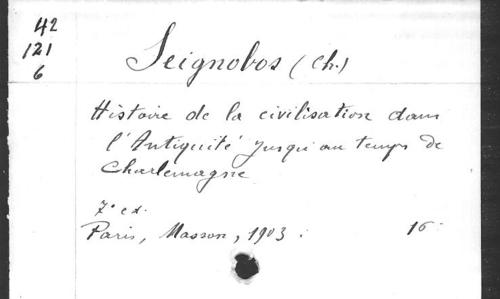 42
121
6
Seignobos (Ch.)
Histoire de la civilisation dans
l'Antiquité jusqu'au temps de
Charlemagne
7e ed.
Paris, Masson, 1903. 16